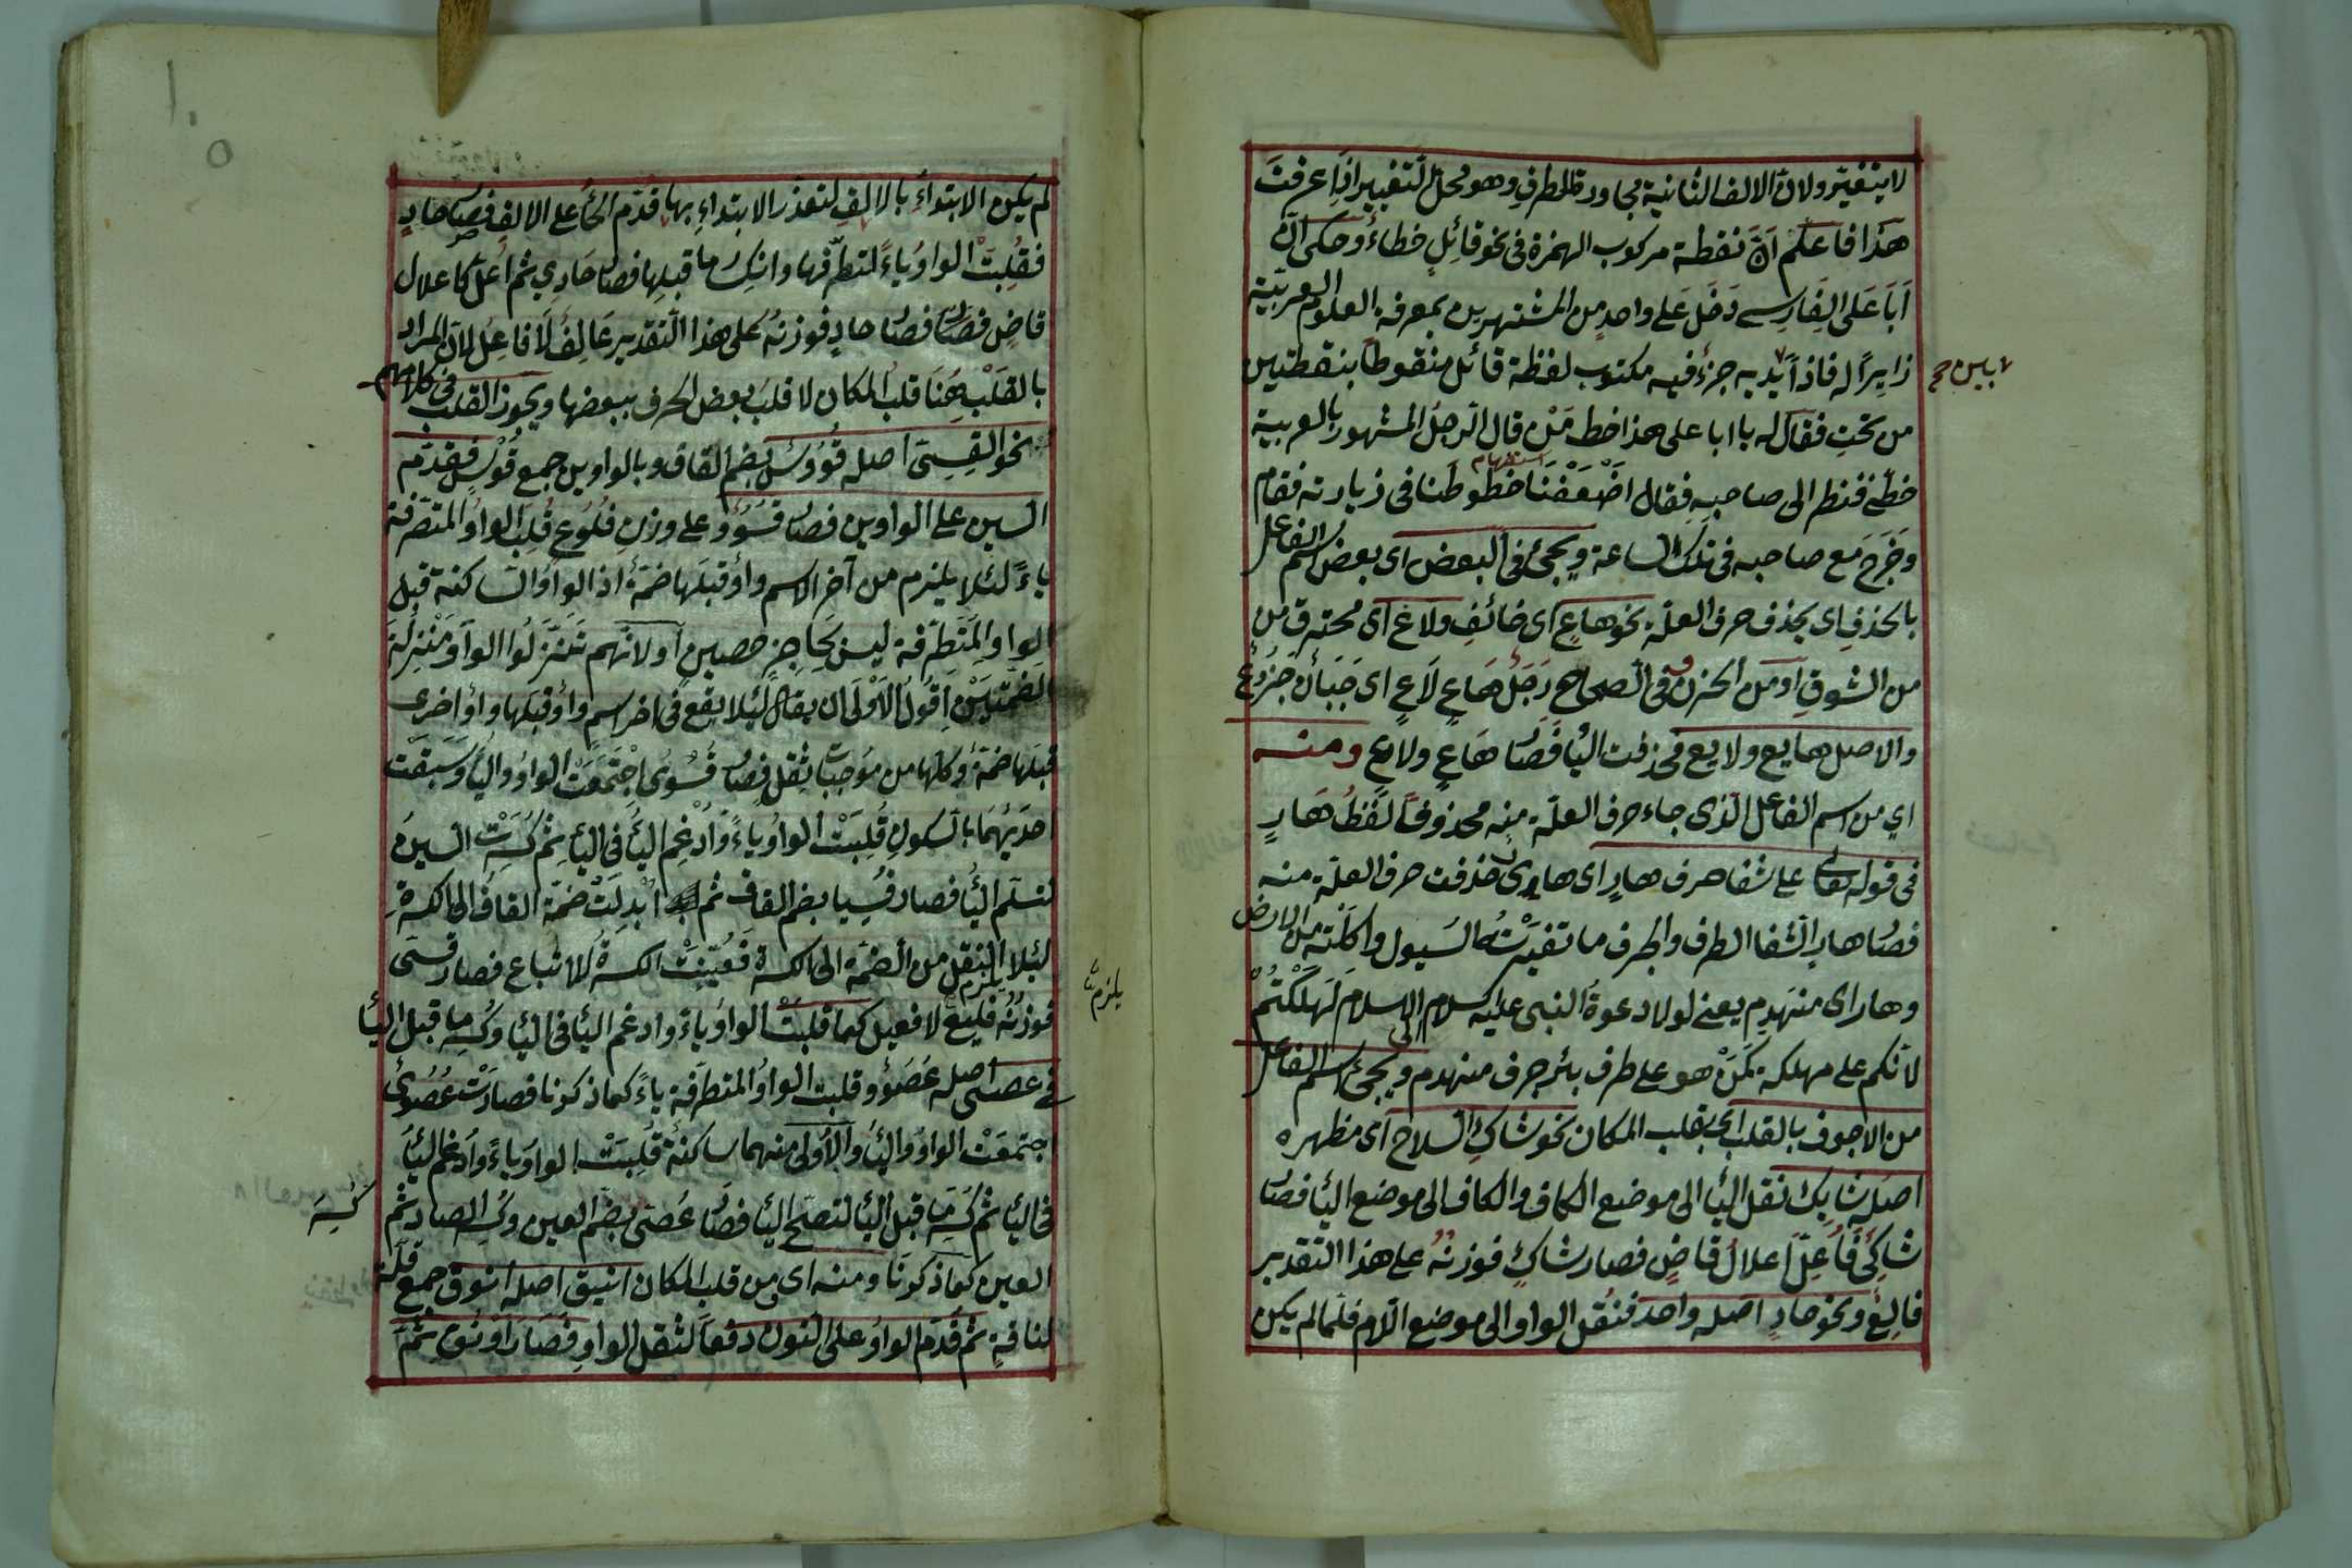 لا يتغيّر ولانّ الالف الثانية مجاورة للطرفِ وهو محلّ لتغيير اذا عرفتَ
هذا فاعلم اَنَّ نقطة مركوب الهمزة فى نحو قائلٍ خطاءٌ وحكى انّ
اَبَا عَلَى الفَارِسى دَخَلَ عَلى واحدٍ من المشتهرين بمعرفة العلوم العربيّة
زايرًا له فاذا يديه جزءٌ فيه مكتوب لفظة قائل منقوطًا بنقطتين
بين صح
من تحتِ فقال له يا ابا على هذا خط مَنْ قال الرجلُ المشهور بالعربية
استفهام
خطّى فنظر الى صاحبهِ فقال اضْعَفْنَا خطوطنا فى زيارته فقام
وخَرَجَ مع صاحبه فى تلك الساعة ويجئُ فى البعض اى بعض اسم الفاعل
بالحذفِ اى بحذف حرف العلّة نحو هاعٍ اى خائفٍ ولاعٍ اى محترق من
من الشوقِ او من الحزن وفى الصحاح رَجُلٌ هَاعٍ لَاعٍ اى جَبَانٌ جَزُوعٌ
والاصل هايع ولايع فحذفت اليأ فصَار هَاعٍ ولاعٍ ومنه
اي من اسم الفاعل الّذى جاء حرف العلّة منه محذوفًا لفظُ هَارٍ
فى قوله تعالى على شفا جرف هارٍ اى هايرٍ حذفت حرف العلّة منه
فصار هارٍ الشفا الطرف والجرف ما تفيّرتْهُ السيول واكلته من الارض
وهار اى منهدمٍ يعنى لولا دعوةُ النبى عليه السلام الى الاسلام لَهلكْتُمْ
لانّكم على مهلكة كَمَنْ هو على طرف بئر جرف منهدم ويجئ اسم الفاعل
من الاجوف بالقلب اى بقلب المكان نحو شاكٍ السلاح اى مظهره
اصله شايِكٌ نقل اليأ الى موضع الكاف والكاف الى موضع اليأ فصار
شاكىٌ فاُعِلَّ اعلالَ قاضٍ فصار شاكٍ فوزنُهُ على هذا التقدير
فالِعٌ ونحو حادٍ اصله واحد فنُقل الواو الى موضع اللّام فلمّا لم يكن
لم يكن الابتداءُ بالالفِ لتعذّر الابتداءِ بها قدّم الحأُ على الالفِ فصار حادِوٌ
فقُلِبَتْ الواوُ ياءً لتطرّفها وانكسار ما قبلها فصار حَادِىٌ ثم اُعلّ كاعلال
قاضٍ فصار حادٍ فوزنهُ على هذا التّقدير عَالِفٌ لَا فاعِلٌ لانّ المراد
بالقَلْب هُنَا قلبُ المكان لا قلبَ بعض الحرف ببعضها ويجوز القلب فى كلامهم
نحو القِسِىّ اصله قُوُوسٌ بضم القاف وبالواوين جمع قَوْسٍ فقدّم
السين على الواوين فصار قُسُوْوٌ على وزن فُلُوع قُلِبَ الواوُ المتطرّفة
ياءً لئلا يلزم من آخر الاسم واوٌ قبلها ضمّةٌ اذ الواوُ الساكنة قبل
الواوِ المتطرّفة ليس بحَاجِزٍ حصينٍ او لانّهم تنزّلُوا الواوَ مَنْزِلَةَ
الضمّتَيْن اقولُ الاَوْلَى ان يقال لئلّا يقع فى اخر اسم واوٌ قبلها واوٌ اخرى
قبلها ضمّةٌ وكلّها من مُوجِبَات ثقل فصار قُسُوْىٌ اجْتَمَعَتْ الواوُ واليأُ وسَبَقَتْ
احديهُمَا بالسكون قُلِبَتْ الواوُ ياءً وَاُدْغِمَ اليأُ فى اليأِ ثم كُسِرَتْ السينُ
لتسلم اليأُ فصار قُسِيّا بضم القاف ثم اُبْدِلَتْ ضمّة القاف الى الكسرة
لئلا يلزم النقل من الضمّة الى الكسرة فَعُيِّنَتْ الكسرةُ للاتباع فصار قِسِىّ
يلزم
فوزنُهُ فليع لا فعيل كما قلبَتْ الواوُ ياءً وادغم اليأ فى اليأ وكُسِر ما قبل اليأ
فى عصىّ اصله عُصُوْوٌ قلبت الواوُ المتطرّفة ياءً كما ذكرنا فصارَتْ عُصُوْىٌ
اجتمعَتْ الواوُ واليأُ والاُولى منهما ساكنةٌ قُلِبَتْ الواوُ ياءً وَاُدْغم اليأُ
فى اليأ ثم كُسِرَ مَا قبل اليأ لتصحّ اليأ فصار عُصىّ بضم العين وكَسر الصاد ثم
كُسِرَ
العين كما ذكرنَا ومنه اى ومن قلب المكان اَنيق اصله اَنوق جمع قلّة
لناقةٍ ثم قُدّم الواوُ على النون دفعًا لثقل الواوِ فصَارَ اَوْنُق ثم